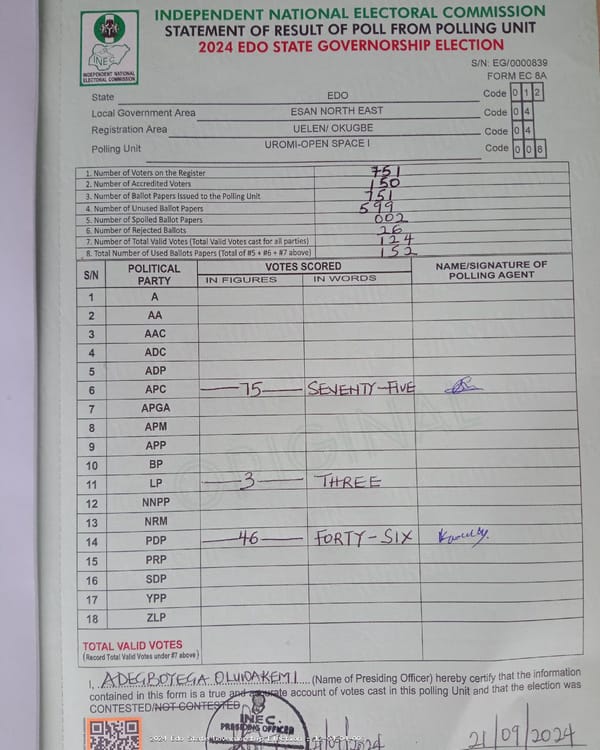 INDEPENDENT NATIONAL ELECTORAL COMMISSION
STATEMENT OF RESULT OF POLL FROM POLLING UNIT
2024 EDO STATE GOVERNORSHIP ELECTION
INEC
INDEPENDENT NATIONAL
ELECTORAL COMMISSION
S/N: EG/0000839
FORM EC 8A
State EDO Code 0 1 2
Local Government Area ESAN NORTH EAST Code 0 4
Registration Area UELEN/ OKUGBE Code 0 4
Polling Unit UROMI-OPEN SPACE I Code 0 0 8
1. Number of Voters on the Register 751
2. Number of Accredited Voters 150
3. Number of Ballot Papers Issued to the Polling Unit 751
4. Number of Unused Ballot Papers 599
5. Number of Spoiled Ballot Papers 002
6. Number of Rejected Ballots 26
7. Number of Total Valid Votes (Total Valid Votes cast for all parties) 124
8. Total Number of Used Ballots Papers (Total of #5 + #6 + #7 above) 152
S/N POLITICAL PARTY VOTES SCORED NAME/SIGNATURE OF POLLING AGENT
IN FIGURES IN WORDS
1 A
2 AA
3 AAC
4 ADC
5 ADP
6 APC 75 SEVENTY-FIVE
7 APGA
8 APM
9 APP
10 BP
11 LP 3 THREE
12 NNPP
13 NRM
14 PDP 46 FORTY-SIX
15 PRP
16 SDP
17 YPP
18 ZLP
ORIGINAL
TOTAL VALID VOTES
(Record Total Valid Votes under #7 above)
I, ADEGBOYEGA OLUIDAKEMI (Name of Presiding Officer) hereby certify that the information
contained in this form is a true and accurate account of votes cast in this polling Unit and that the election was
CONTESTED/NOT CONTESTED
INEC
PRESIDING OFFICER
21/09/2024
21/09/2024